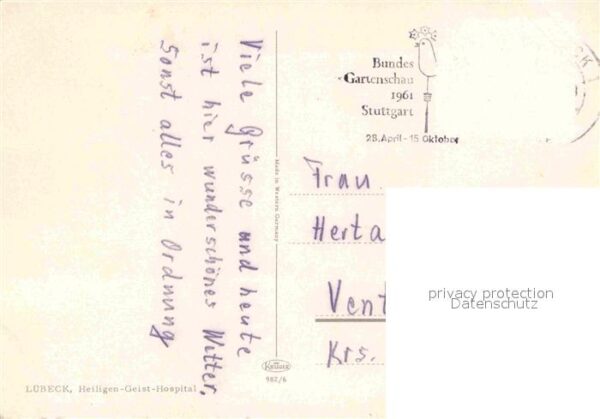 Viele Grüsse und heute
ist hier wunderschönes Wetter,
Sonst alles in Ordnung
Bundes
Gartenschau
1961
Stuttgart
28. April - 15 Oktober
Made in Western Germany
Frau
Herta
Vent
Krs.
privacy protection
Datenschutz
Krüger
982/6
LÜBECK, Heiligen-Geist-Hospital